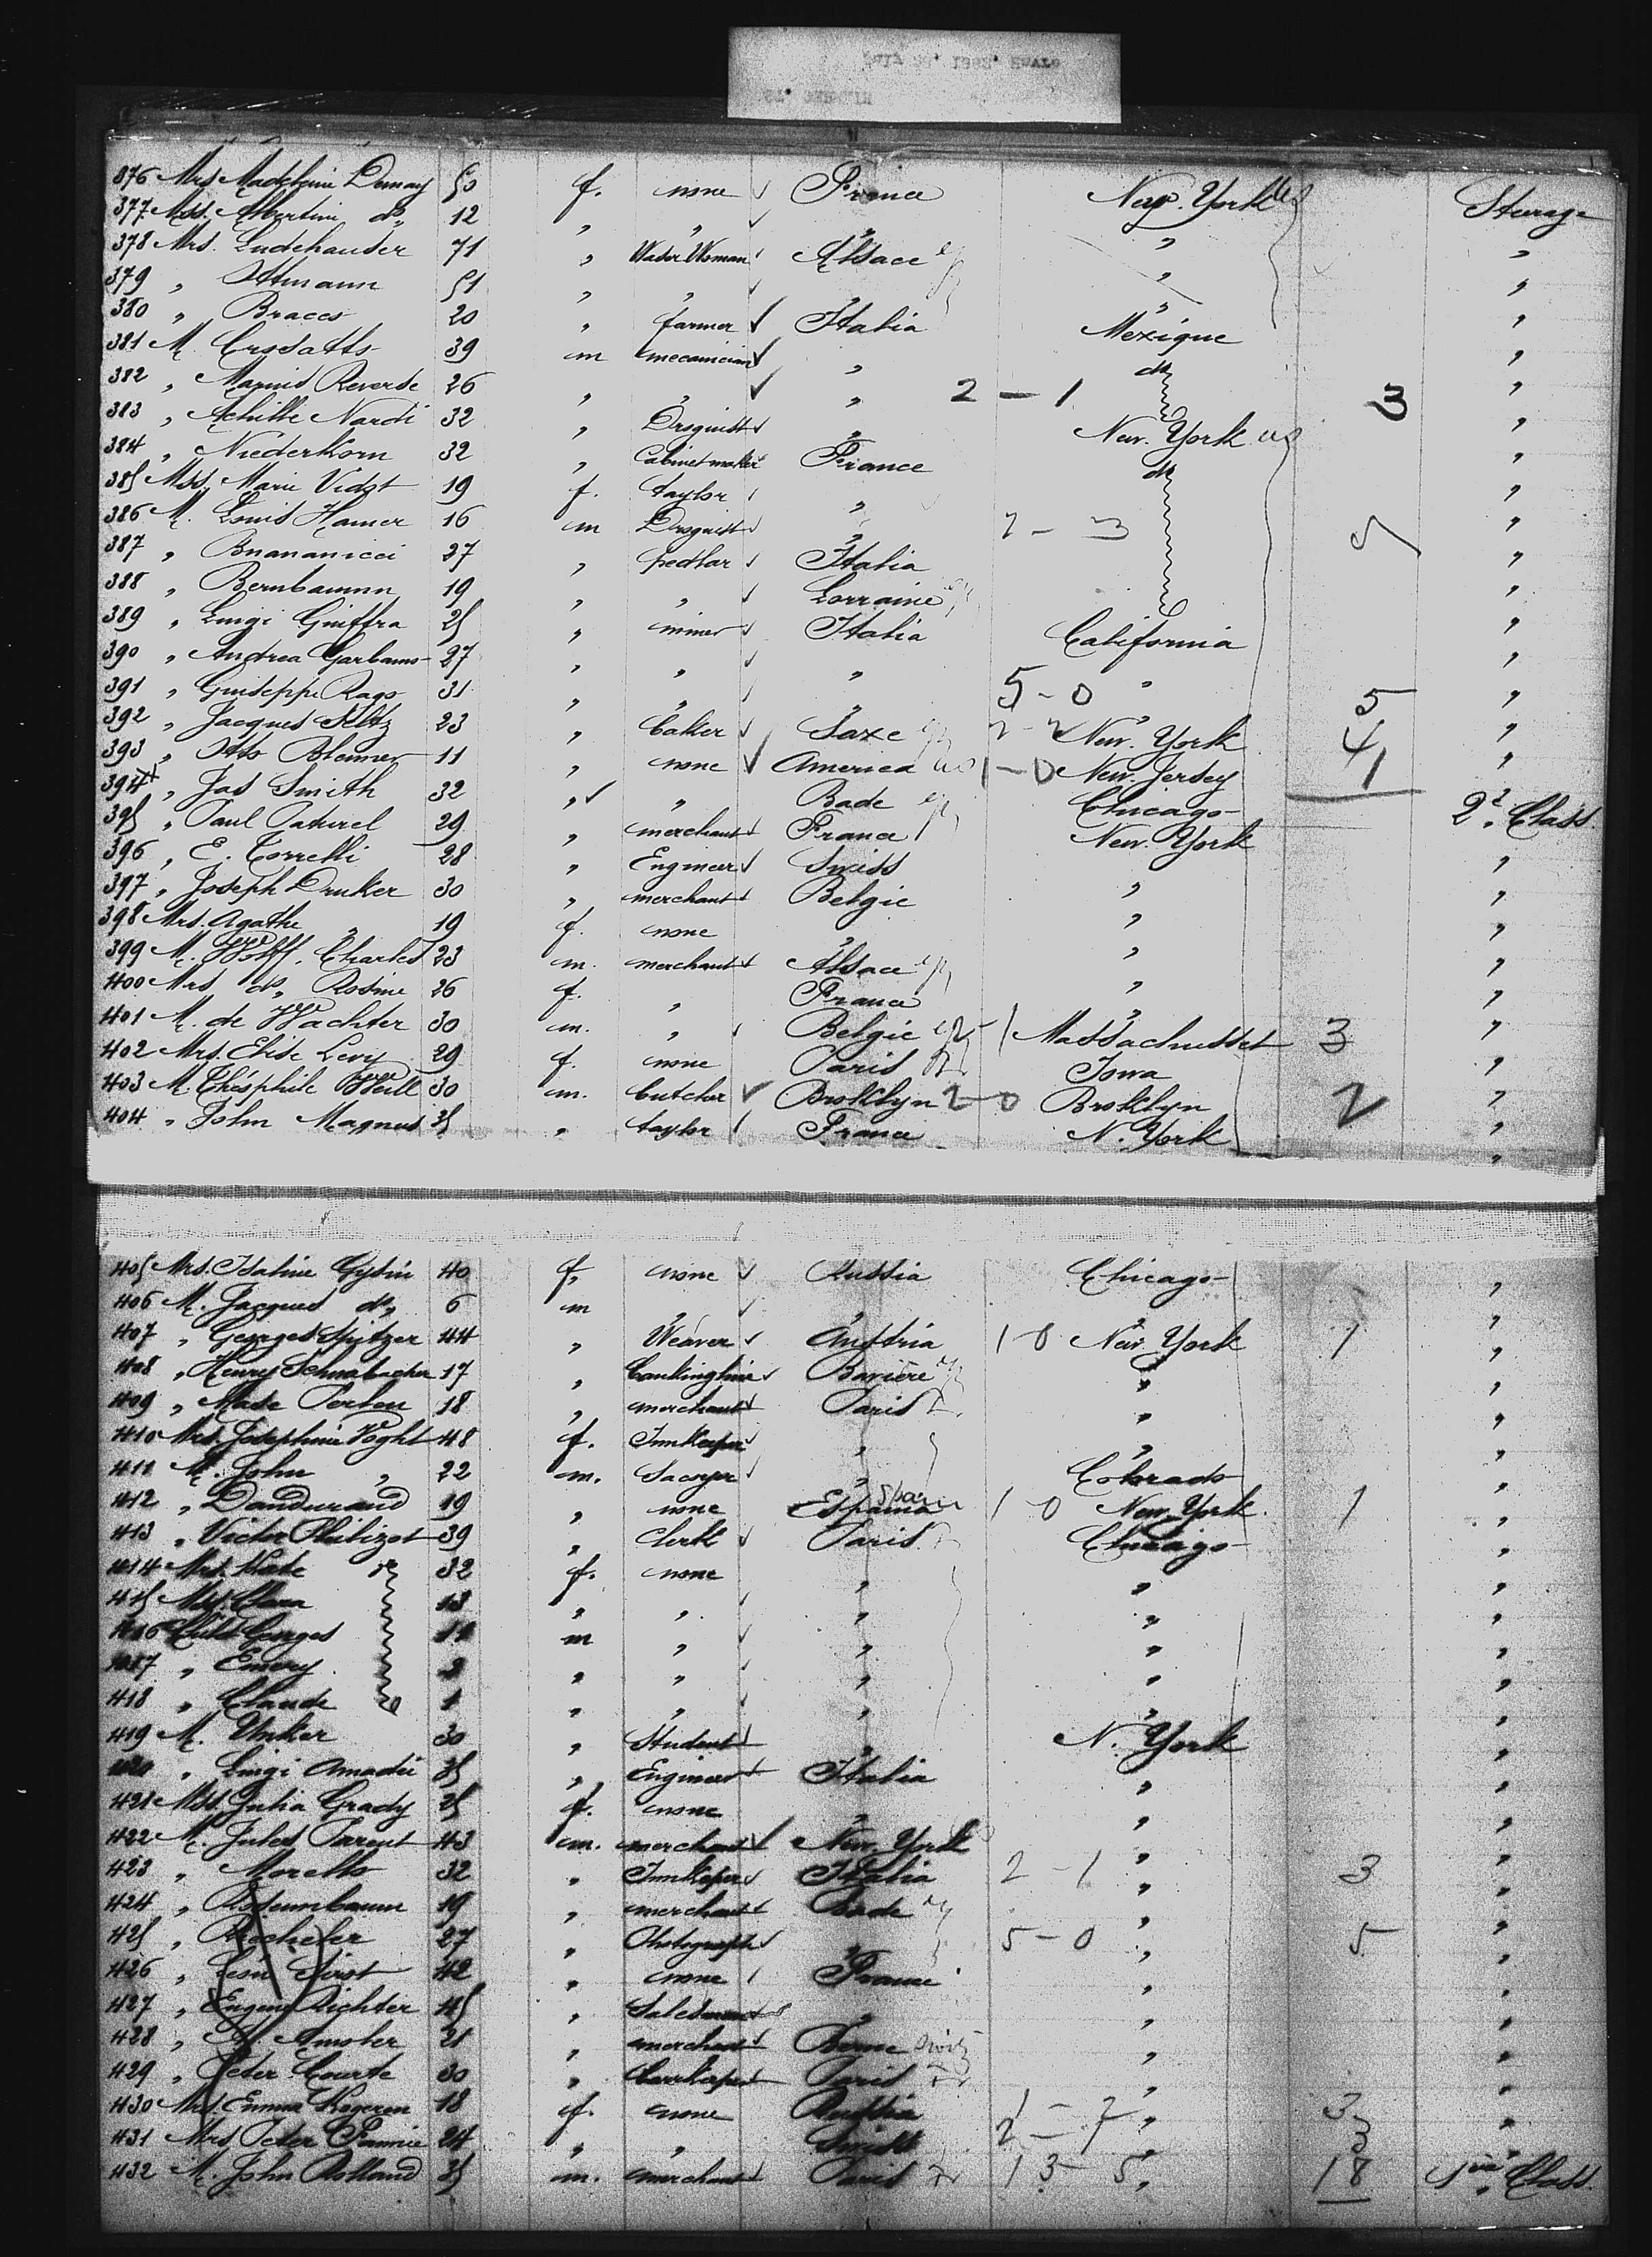 376 Mrs Madeleine Demay 50 f. none France New. York Sterage
377 Mss. Albertini do, 12 " " " " "
378 Mrs. Ludehauser 71 " Alsace " "
379 " Attmann 51 " " " " "
380 " Bracco 20 " farmer Italia " "
381 M. 39 m mecanician " Mexique "
382 " Reverde 26 " " " 2 - 1 do 3 "
383 " Achille Nardi 32 " Droguist " New. York us "
384 " Niederkorn 32 " Cabinet maker France do "
385 Mss. Marie Vidot 19 f. taylor " "
386 M. Louis Hamer 16 m Droguist " 2 - 3 5 "
387 " 27 " pedlar Italia "
388 " Bernbaumn 19 " " Lorraine "
389 " Luigi Giuffra 25 " miner Italia California "
390 " Andrea Garbano 27 " " " " "
391 " Guiseppe Rago 31 " " " 5 - 0 " 5 "
392 " Jacques 23 " baker Saxe New. York 4 "
393 " Otto 11 " none America us 1 - 0 New. Jersey 1 "
394 " Jas Smith 32 " " Bade Chicago 2d. Class.
395 " Paul Paturel 29 " merchant France New. York
396 " E. Correlli 28 " Engineer Swiss " "
397 " Joseph Druker 30 " merchant Belgic " "
398 Mrs. Agathe " 19 f. none " " "
399 M. Wolff. Charles 23 m. merchant Alsace " "
400 Mrs do, Rosine 26 f. " France " "
401 M. de Wachter 30 m. " Belgic Massachusset 3 "
402 Mrs. Elise Levy 29 f. none Paris Fr Iowa "
403 M. Théophile Weill 30 m. butcher Brooklyn 2 - 0 Brooklyn 2 "
404 " John Magnus 35 " taylor France N. York "
405 Mrs. Gysin 40 f. none Russia Chicago "
406 M. Jacques do, 6 m " " " "
407 " Georges Spitzer 44 " Weaver Austria 1 - 0 New. York 1 "
408 " Henry Schnabacher 17 " Bavière " "
409 " 18 " merchant Paris " "
410 Mrs. Josephine Voght 48 f. Innkeeper " " "
411 M. John " 22 m. " Colorado "
412 " Dandurand 19 " none Espania Spain 1 - 0 New. York. 1 "
413 " Victor Philizot 39 " Clerk Paris Chicago "
414 Mrs. do 32 f. none " " "
415 Mss. Clara 13 " " " " "
416 Child Georges 11 m " " " "
417 " Emery " " " " "
418 " Claude 1 " " " " "
419 M. Unker 30 " Student " N. York "
420 " Luigi Amadei 35 " Engineer Italia " "
421 Mss. Julia Grady 25 f. none " " "
422 M. Jules Parent 43 m. merchant New. York " "
423 " Morello 32 " Innkeeper Italia 2 - 1 " 3 "
424 " 19 " merchant Bade " "
425 " 27 " Photograph " 5 - 0 " 5 "
426 " Léon 42 " none France " "
427 " Eugene Richter 45 " Salesman " " "
428 " Amsler 21 " merchant Berne " "
429 " Peter Courte 30 " Paris Fr " "
430 Mrs. Emma 18 f. none Russia " 3 "
431 Mrs Peter Fannie 24 " " Swiss " 3 "
432 M. John Rolland 35 m. merchant Paris Fr 13 - 5 " 18 Class.